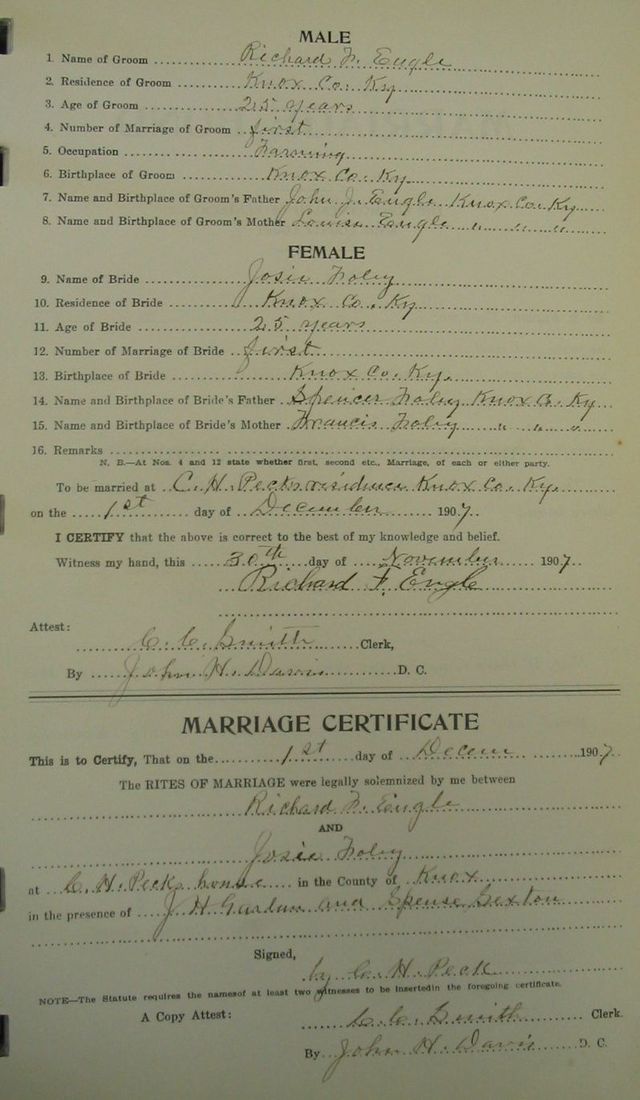 MALE
1. Name of Groom Richard F. Engle
2. Residence of Groom Knox Co. Ky
3. Age of Groom 25 years
4. Number of Marriage of Groom first
5. Occupation Farming
6. Birthplace of Groom Knox Co. Ky.
7. Name and Birthplace of Groom's Father John J. Engle Knox Co. Ky.
8. Name and Birthplace of Groom's Mother Louisa Engle " " "
FEMALE
9. Name of Bride Josie Foley
10. Residence of Bride Knox Co. Ky
11. Age of Bride 25 years
12. Number of Marriage of Bride first
13. Birthplace of Bride Knox Co. Ky.
14. Name and Birthplace of Bride's Father Spencer Foley Knox Co. Ky
15. Name and Birthplace of Bride's Mother Francis Foley " " "
16. Remarks
N. B.—At Nos. 4 and 12 state whether first, second etc., Marriage, of each or either party.
To be married at C. H. Pecks residence Knox Co. Ky.
on the 1st day of December 1907.
I CERTIFY that the above is correct to the best of my knowledge and belief.
Witness my hand, this 30th day of November 1907.
Richard F. Engle
Attest:
C. C. Smith Clerk,
By John H. Davis D. C.
MARRIAGE CERTIFICATE
This is to Certify, That on the 1st day of Decem 1907
The RITES OF MARRIAGE were legally solemnized by me between
Richard F. Engle
AND
Josie Foley
at C. H. Pecks house in the County of Knox
in the presence of J H and Spense Sexton
Signed,
by C. H. Peck
NOTE—The Statute requires the namesof at least two witnesses to be insertedin the foregoing certificate.
A Copy Attest: C. C. Smith Clerk.
By John H. Davis D. C.